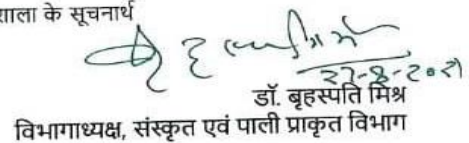 शाला के सूचनार्थ
27-8-2021
डॉ. बृहस्पति मिश्र
विभागाध्यक्ष, संस्कृत एवं पाली प्राकृत विभाग